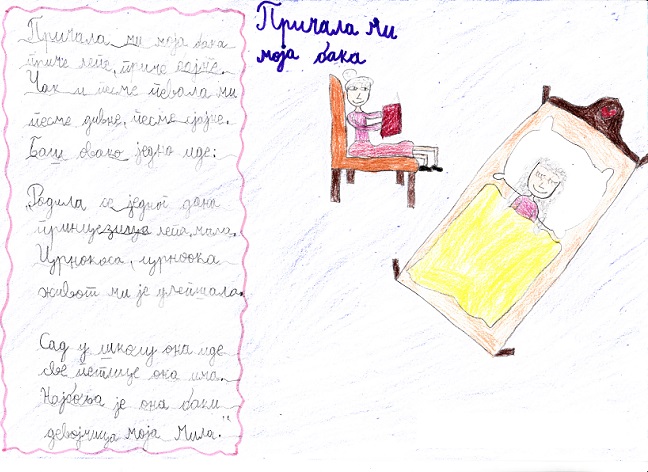 Причала ми
моја бака
Причала ми моја бака
приче лепе, приче бајне.
Чак и песме певала ми
песме дивне, песме сјајне.
Баш овако једна иде:
Родила се једног дана
принцезица лепа, мала.
Црнокоса, црноока
живот ми је улепшала.
Сад у школу она иде
све петице она има.
Најбоља је она баки
девојчица моја Мила."